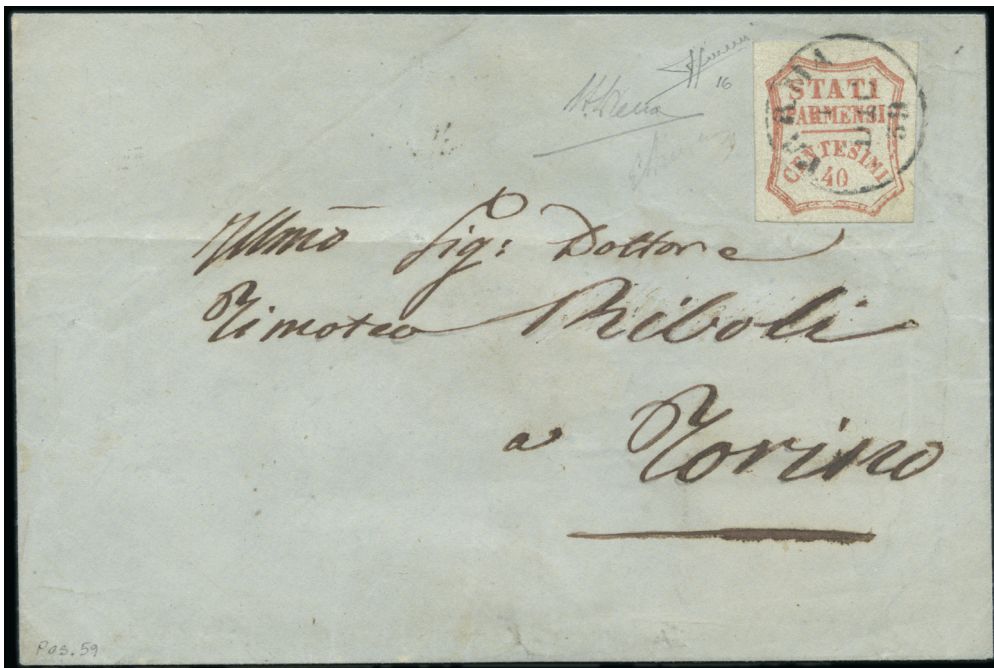 16
STATI
PARMENSI
CENTESIMI
40
PARMA
LUG
59
Illmo Sig: Dottore
Timoteo Riboli
a Torino
Pos. 59